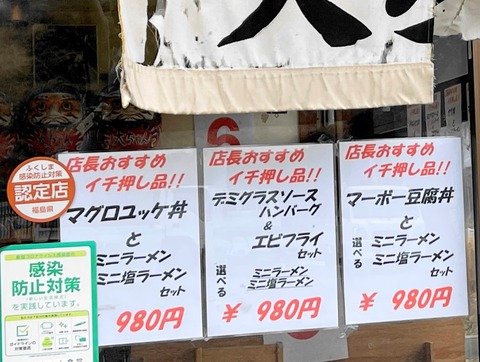 6
ふくしま
感染防止対策
認定店
福島県
店長おすすめ
イチ押し品!!
マグロユッケ丼
と
ミニラーメン
ミニ塩ラーメン
セット
¥ 980円
店長おすすめ
イチ押し品!!
デミグラスソース
ハンバーグ
&
エビフライ
セット
選べる
ミニラーメン
ミニ塩ラーメン
¥ 980円
店長おすすめ
イチ押し品!!
マーボー豆腐丼
と
選べる
ミニラーメン
ミニ塩ラーメン
セット
¥ 980円
感染
防止対策
を実践しています。